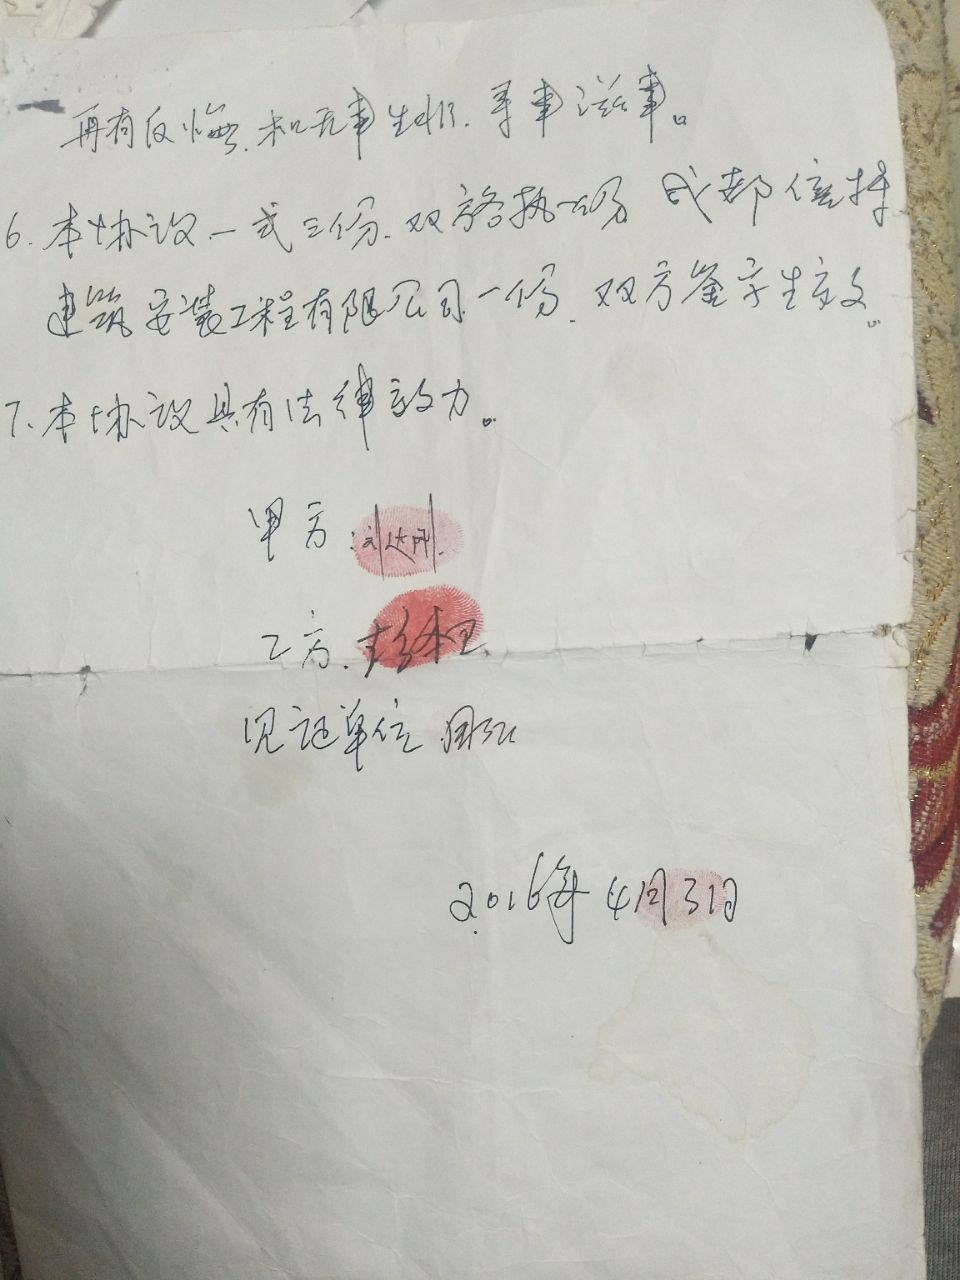 再有反悔.和无事生非.寻事滋事。
6.本协议一式三份.双方各执一份 成都信持
建筑安装工程有限公司一份.双方签字生效。
7.本协议具有法律效力。
甲方:刘达刚
乙方.彭本
见证单位
2016年4月31日